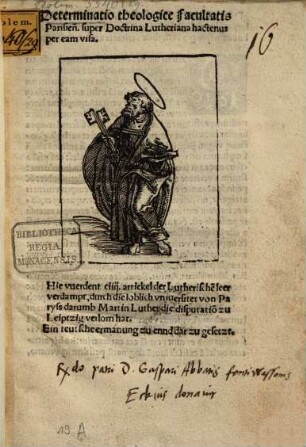 olem.
340/29
16
Determinatio theologice Facultatis
Parisieñ. super Doctrina Lutheriana hactenus
per eam visa.
BIBLIOTHECA
REGIA
MONACENSIS
Hie vuerdent ciiij. artickel der Lutherischē leer
verdampt, durch die loblich vniuersitet von Pa
ryß darumb Martin Luther die disputatiō zu
Leiptzig verlorn hat.
Ein teutsche ermanung zu ennd dar zu gesetzt.
D. Gaspari
donavit
19. A